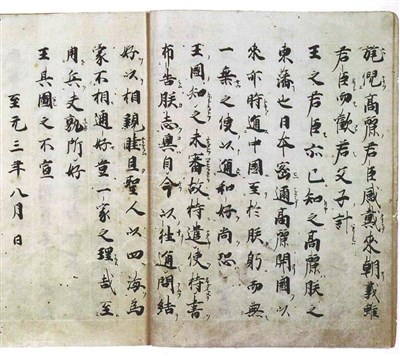 旄倪高麗君臣感戴來朝義雖
君臣而歡若父子計
王之君臣亦已知之高麗朕之
東藩也日本密邇高麗開國以
來亦時通中國至於朕躬而無
一乘之使以通和好尚恐
王國知之未審故特遣使持書
布告朕志冀自今以往通問結
好以相親睦且聖人以四海為
家不相通好豈一家之理哉至
用兵夫孰所好
王其圖之不宣
至元三年八月 日